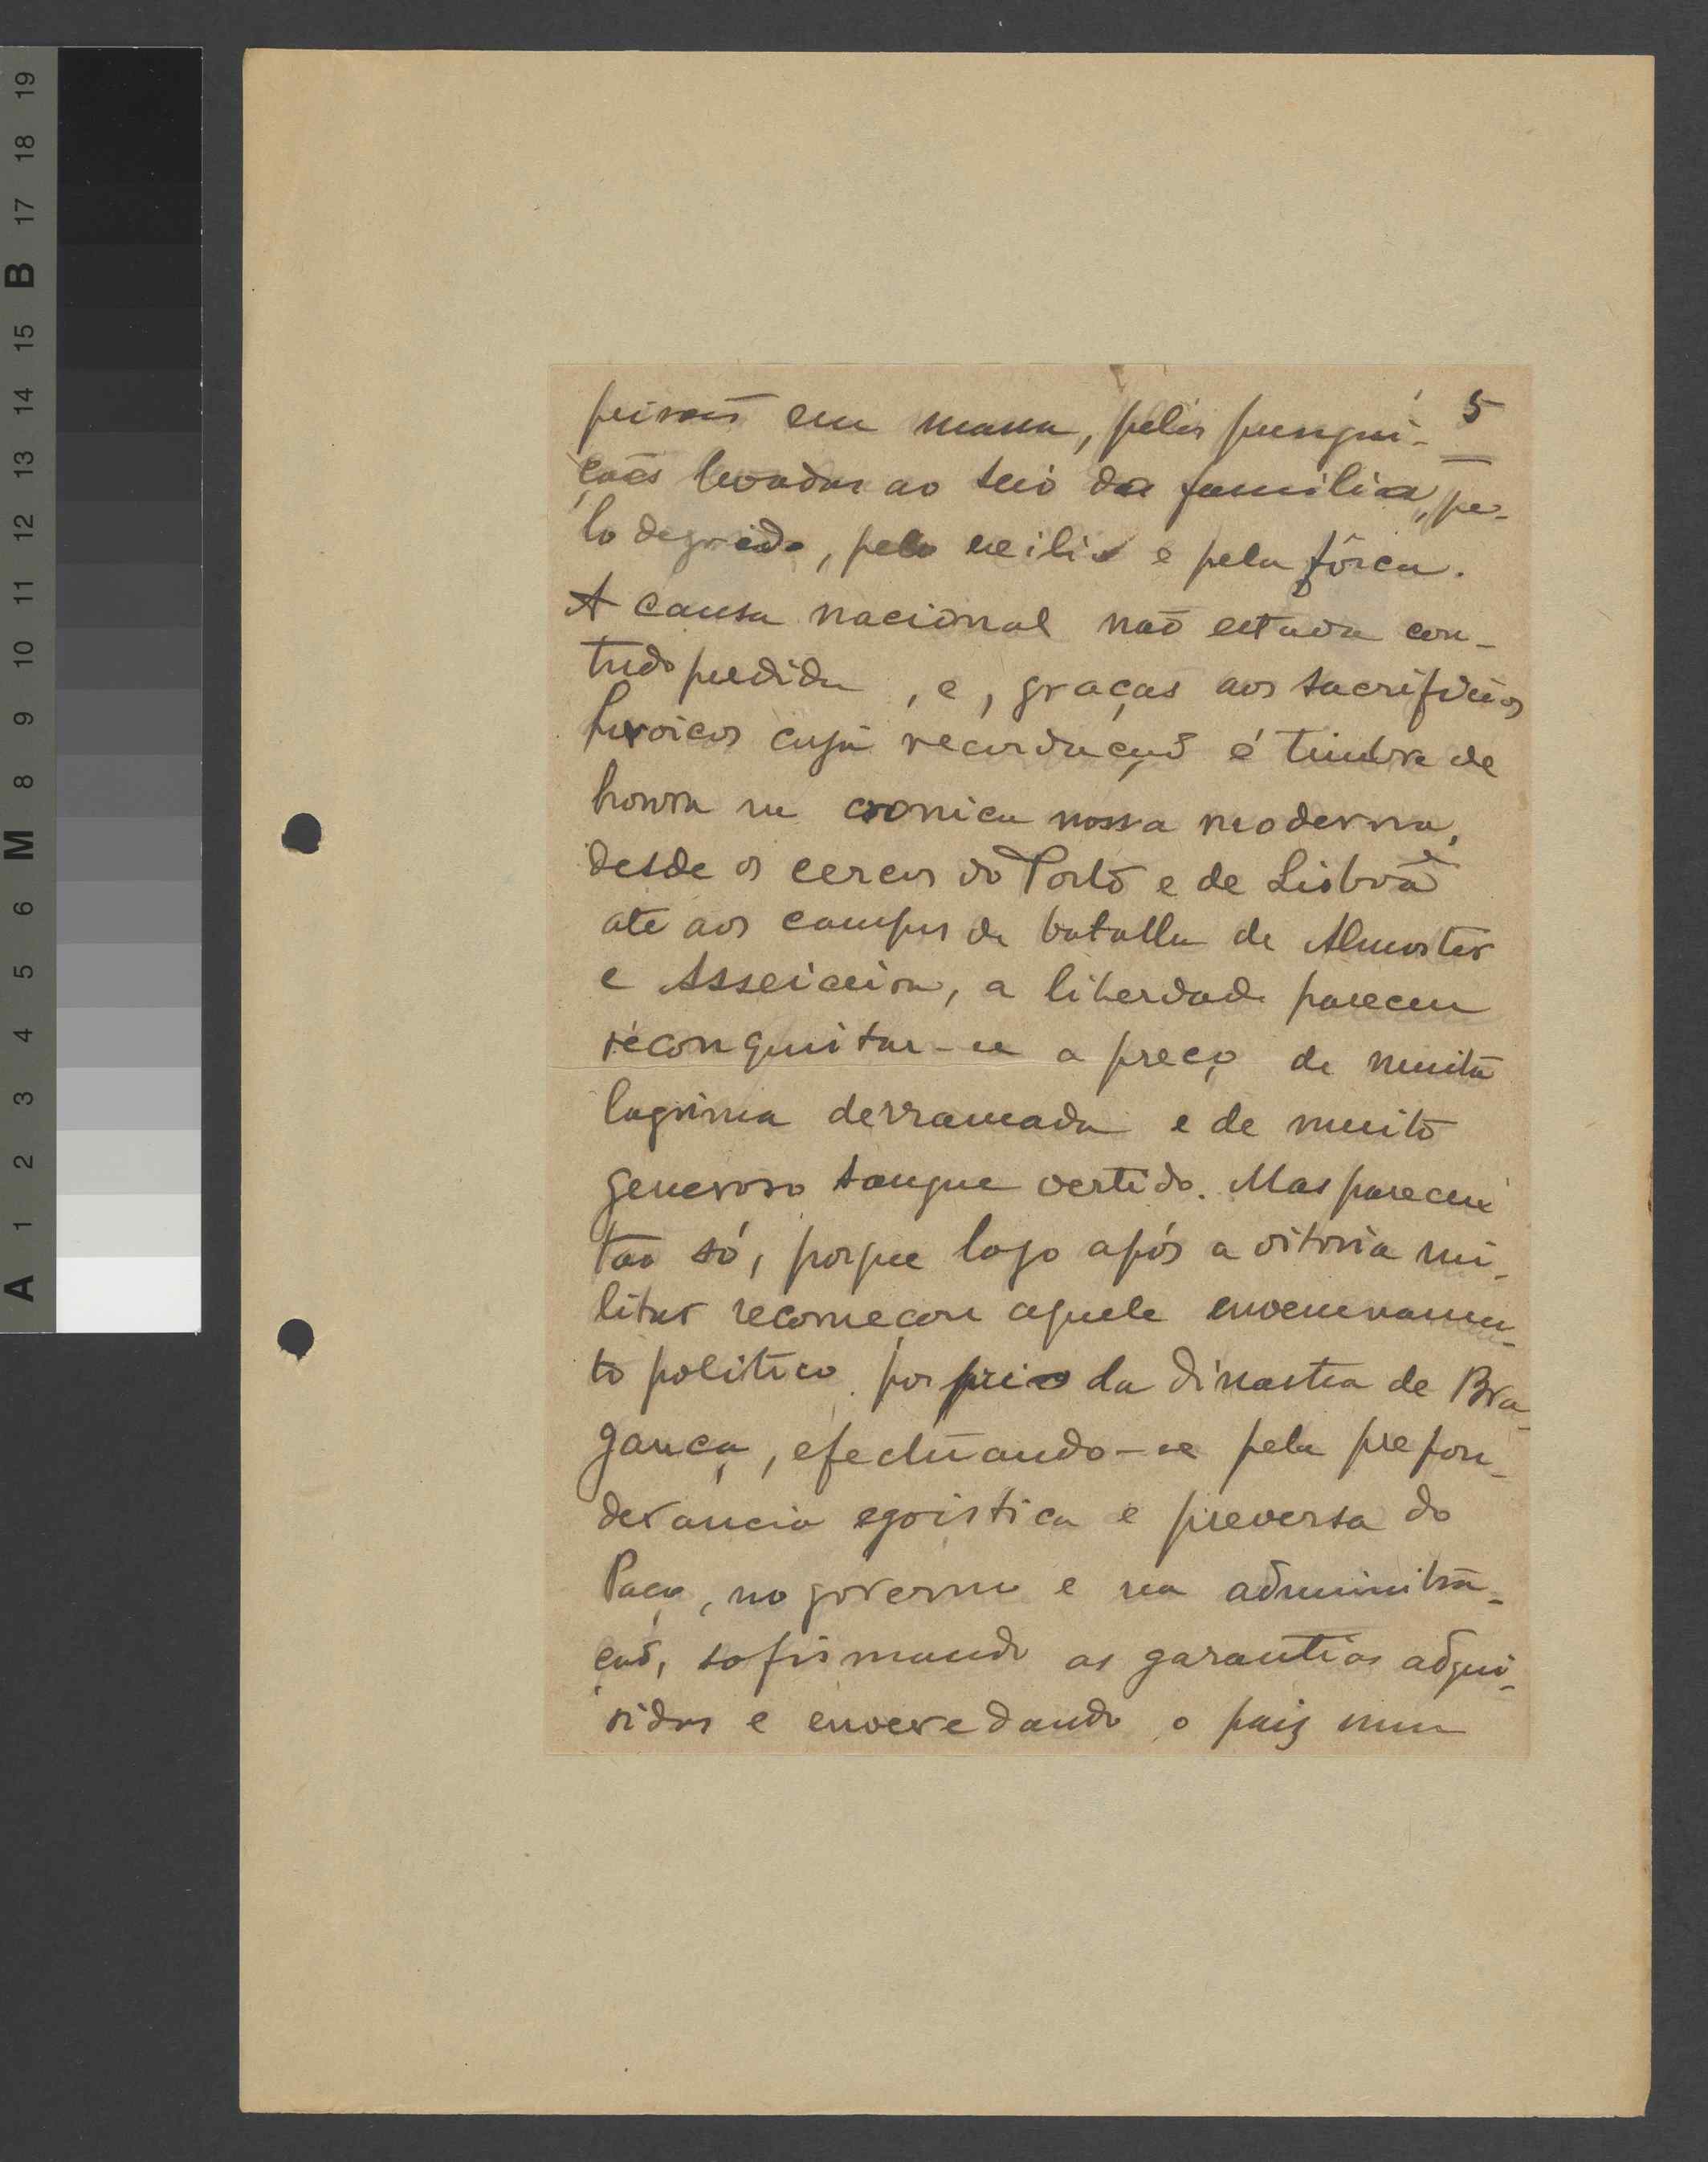 5
prisões em massa, pelas perqui-
ções levadas ao seio da familia, pe-
lo degredo, pelo exilio e pela fôrca.
A causa nacional não estava con-
tudo perdida, e, graças aos sacrificios
heroicos cuja recordação é timbre de
honra na cronica nossa moderna,
desde os cercos do Porto e de Lisboa
até aos campos da batalha de Almoster
e Asseiceira, a liberdade pareceu
reconquistar-se a preço de muita
lagrima derramada e de muito
generoso sangue vertido. Mas pareceu
tão só, porque logo após a vitoria mi-
litar recomeçou aquele envenenamen-
to politico por da dinastia de Bra-
gança, efectuando-se pela prepon-
derancia egoistica e preversa do
Paço, no governo e na administra-
ção, sofismando as garantias adqui-
ridas e enveredando o paiz num